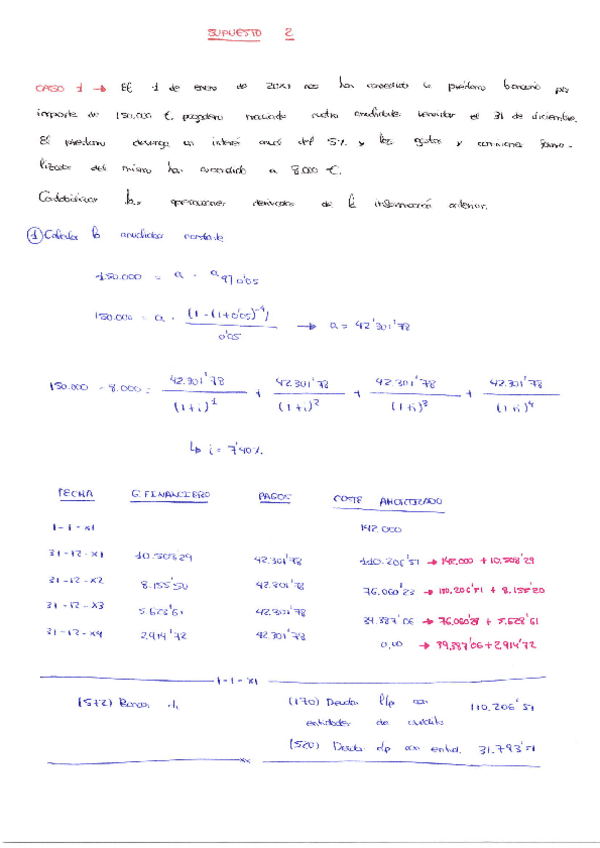 SUPUESTO 2
CASO 1 → El 1 de enero de 20X1 nos han concedido un préstamo bancario por
importe de 150.000 €, pagadero mediante cuatro anualidades vencidas el 31 de diciembre.
El préstamo devenga un interés anual del 5% y los gastos y comisiones forma-
lizados del mismo han ascendido a 8.000 €.
Contabilizar las operaciones derivadas de la información anterior.
① Calcular la anualidad constante
150.000 = a · a 4⌉0'05
150.000 = a · (1-(1+0'05)^-4) / 0'05 → a = 42.301'78
150.000 - 8.000 = 42.301'78 / (1+i)^1 + 42.301'78 / (1+i)^2 + 42.301'78 / (1+i)^3 + 42.301'78 / (1+i)^4
↳ i = 7'40%
FECHA G. FINANCIERO PAGOS COSTE AMORTIZADO
1-1-X1 142.000
31-12-X1 10.508'29 42.301'78 110.206'51 → 142.000 + 10.508'29
31-12-X2 8.155'50 42.301'78 76.060'23 → 110.206'51 + 8.155'20
31-12-X3 5.628'61 42.301'78 39.387'06 → 76.060'23 + 5.628'61
31-12-X4 2.914'72 42.301'78 0,00 → 39.387'06 + 2.914'72
1-1-X1
(572) Bancos (170) Deudas l/p con 110.206'51
entidades de crédito
(520) Deuda c/p con entid. 31.793'51